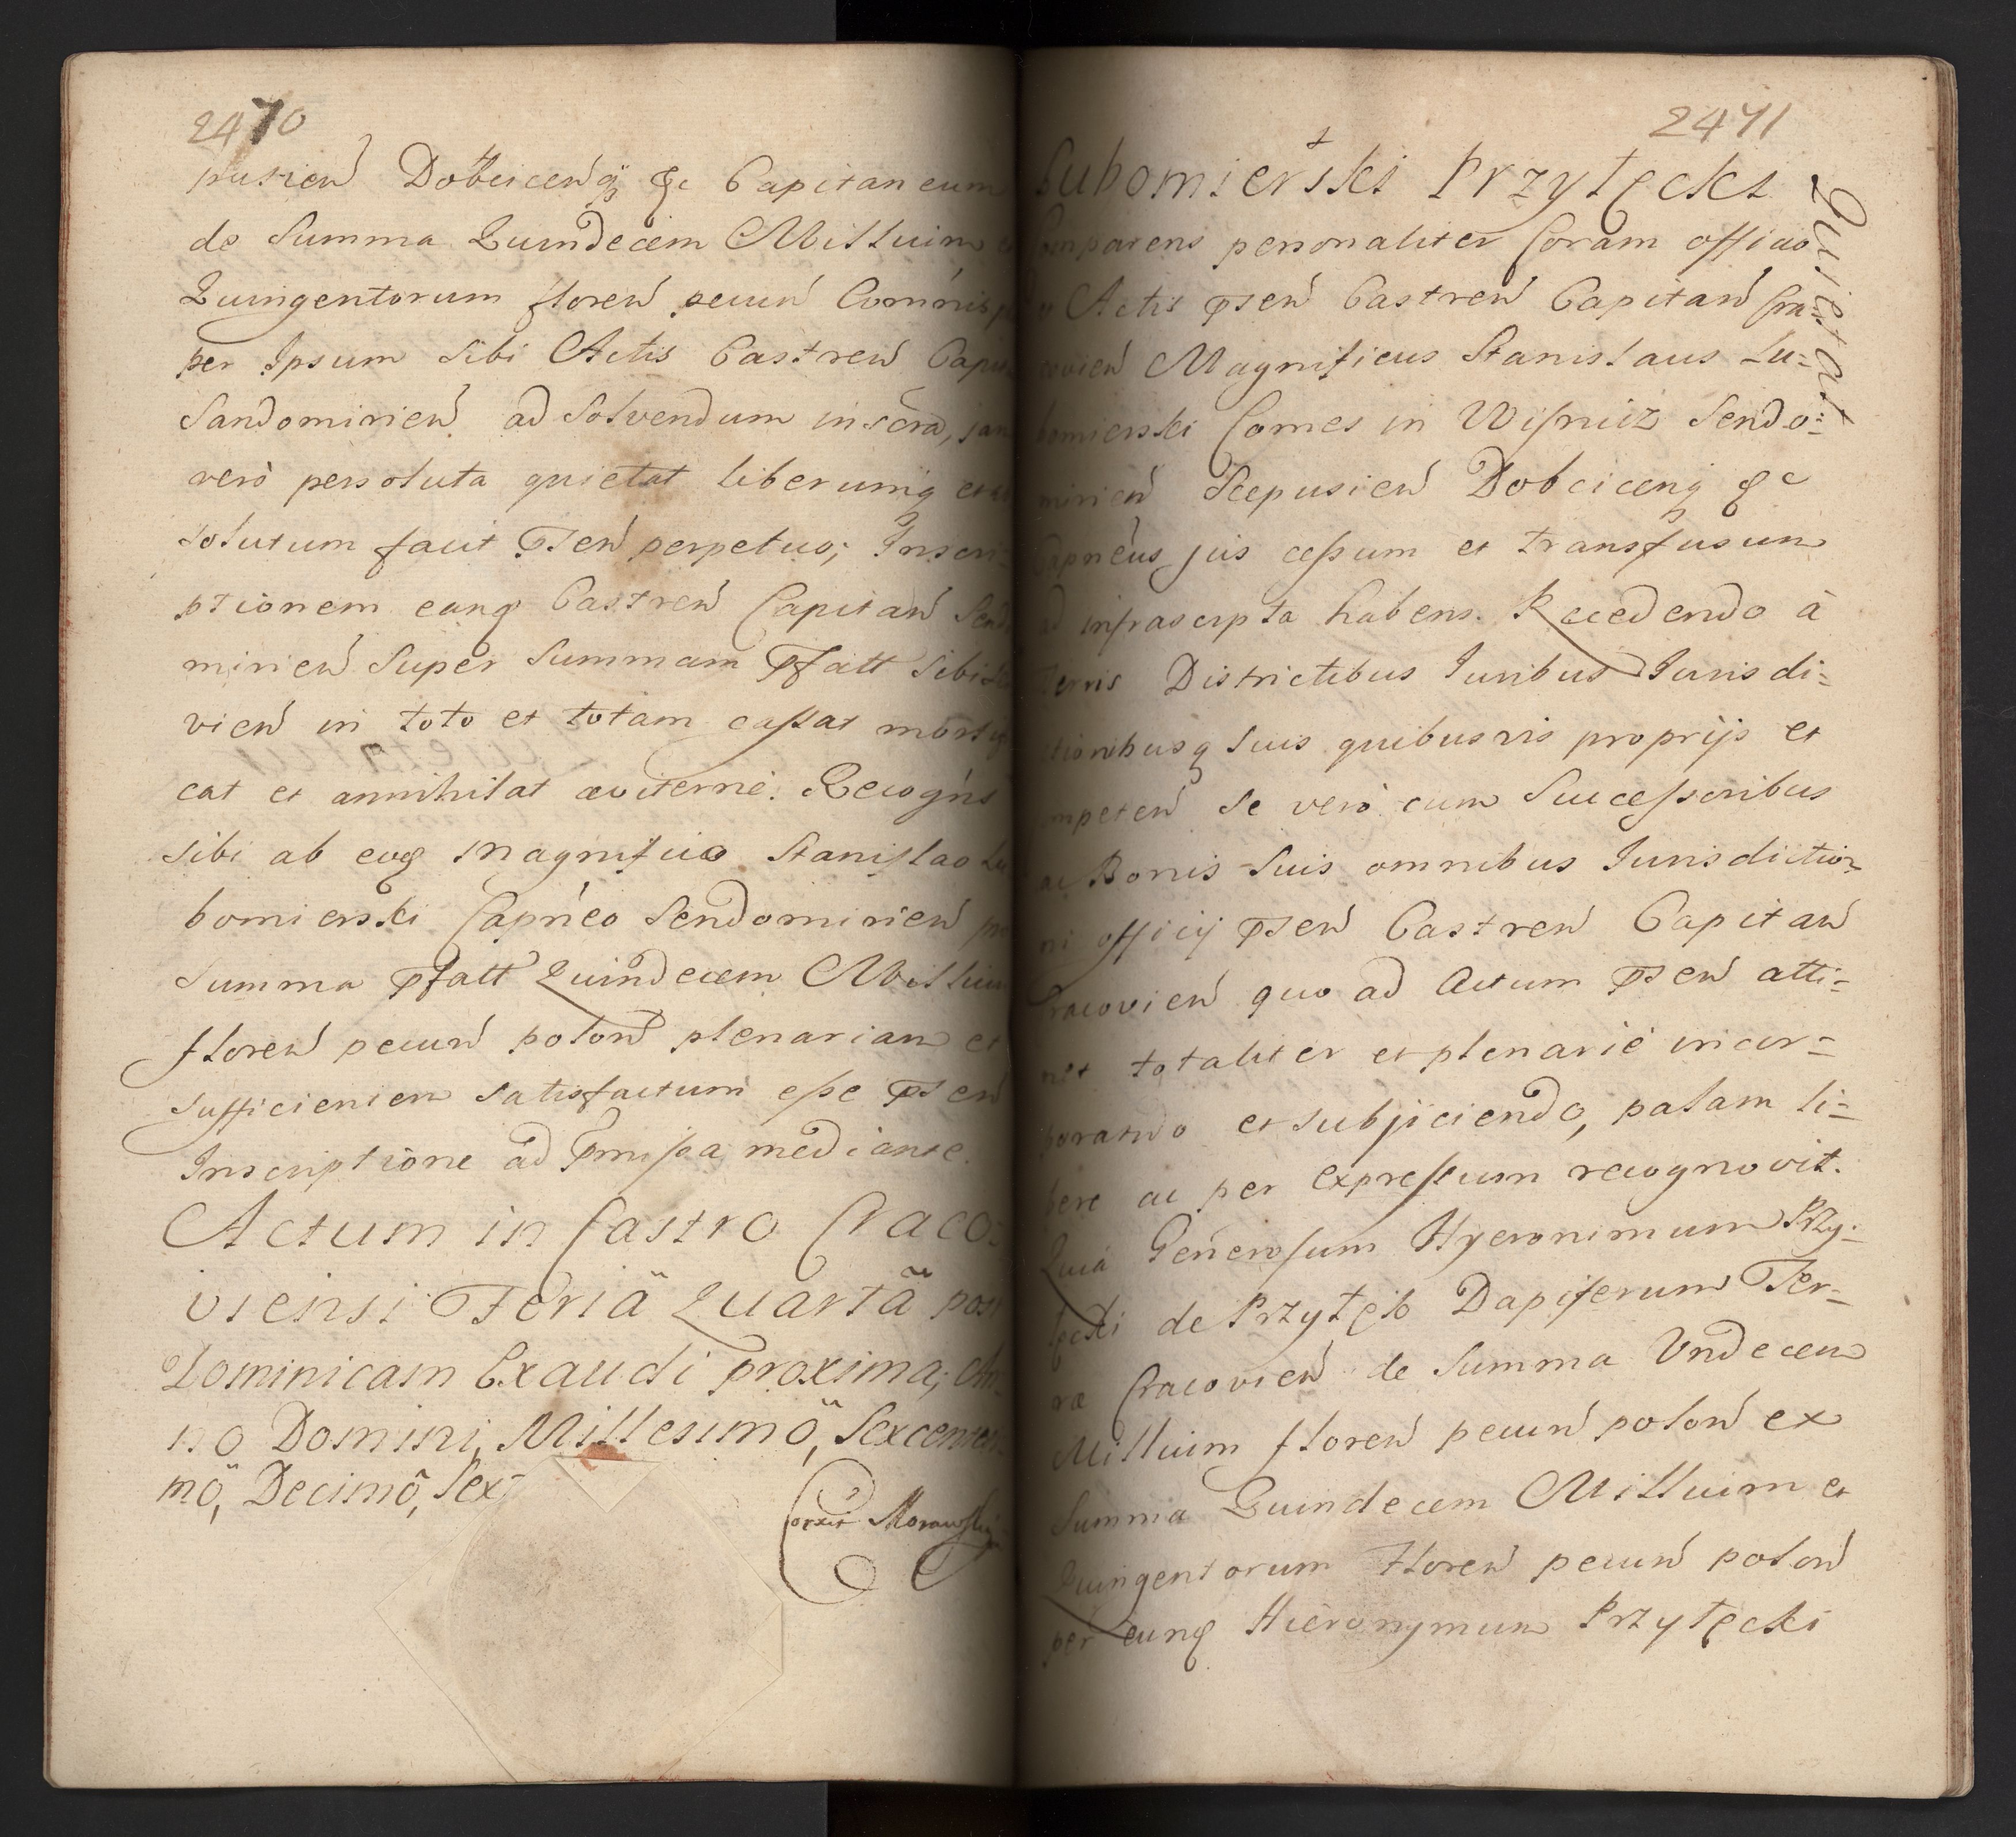 2470
pusień Dobcicenq̃ &c Capitaneum
de Summa Quindecem Millium
Quingentorum floreń pecuń Com̃nis
per Ipsum sibi Actis Castreń
Sandomirień ad solvendum inscra,
verò persoluta quietat liberumq
solutum facit Pseń perpetuo; Inscri-
ptionem eanq Castreń Capitań
mirień super Summam Pfatt sibi
vień in toto et totam cassat
cat et annihilat æviterne. Recogńs
sibi ab eoq Magnifico Stanislao
bomierski Capńeo Sendomirień
Summa Pfatt Quindecem
floreń pecuń poloń plenariam et
sufficientem satisfactum esse Pseń
Inscriptione ad Pmissa mediante.
Actum in Castro Craco-
viensi Feriâ Quartâ post
Dominicam Exaudi proxima, An-
no Domini, Millesimô, Sexcentesi
mô, Decimô, Sex
Corxit Morawski
2471
Lubomierski Przyłęcki
Quietat
Comparens personaliter Coram officio
Actis Pseń Castreń Capitań Cra-
covień Magnificus Stanislaus Lu-
bomierski Comes in Wisnicz Sendo-
mirień Scepusień Dobcicenq &c
Capńeus jus cessum et transfusum
ad infrascripta habens. Recedendo à
Terris Districtibus Iuribus Iurisdi-
ctionibusq suis quibusvis proprijs et
competeń Se verò cum Successoribus
ac Bonis suis omnibus Iurisdictio-
ni officij Pseń Castreń Capitań
Cracovień quo ad Actum Pseń atti-
net totaliter et plenariè incor-
porando et subjiciendo, palam li-
bere ac per expressum recognovit.
Quia Generosum Hyeronimum Przy-
łęcki de Przyłęk Dapiferum Ter-
ræ Cracovień de Summa Undecem
Millium floreń pecuń poloń ex
Summa Quindecem Millium et
Quingentorum Floreń pecuń poloń
per eunq Hieronymum Przyłęcki